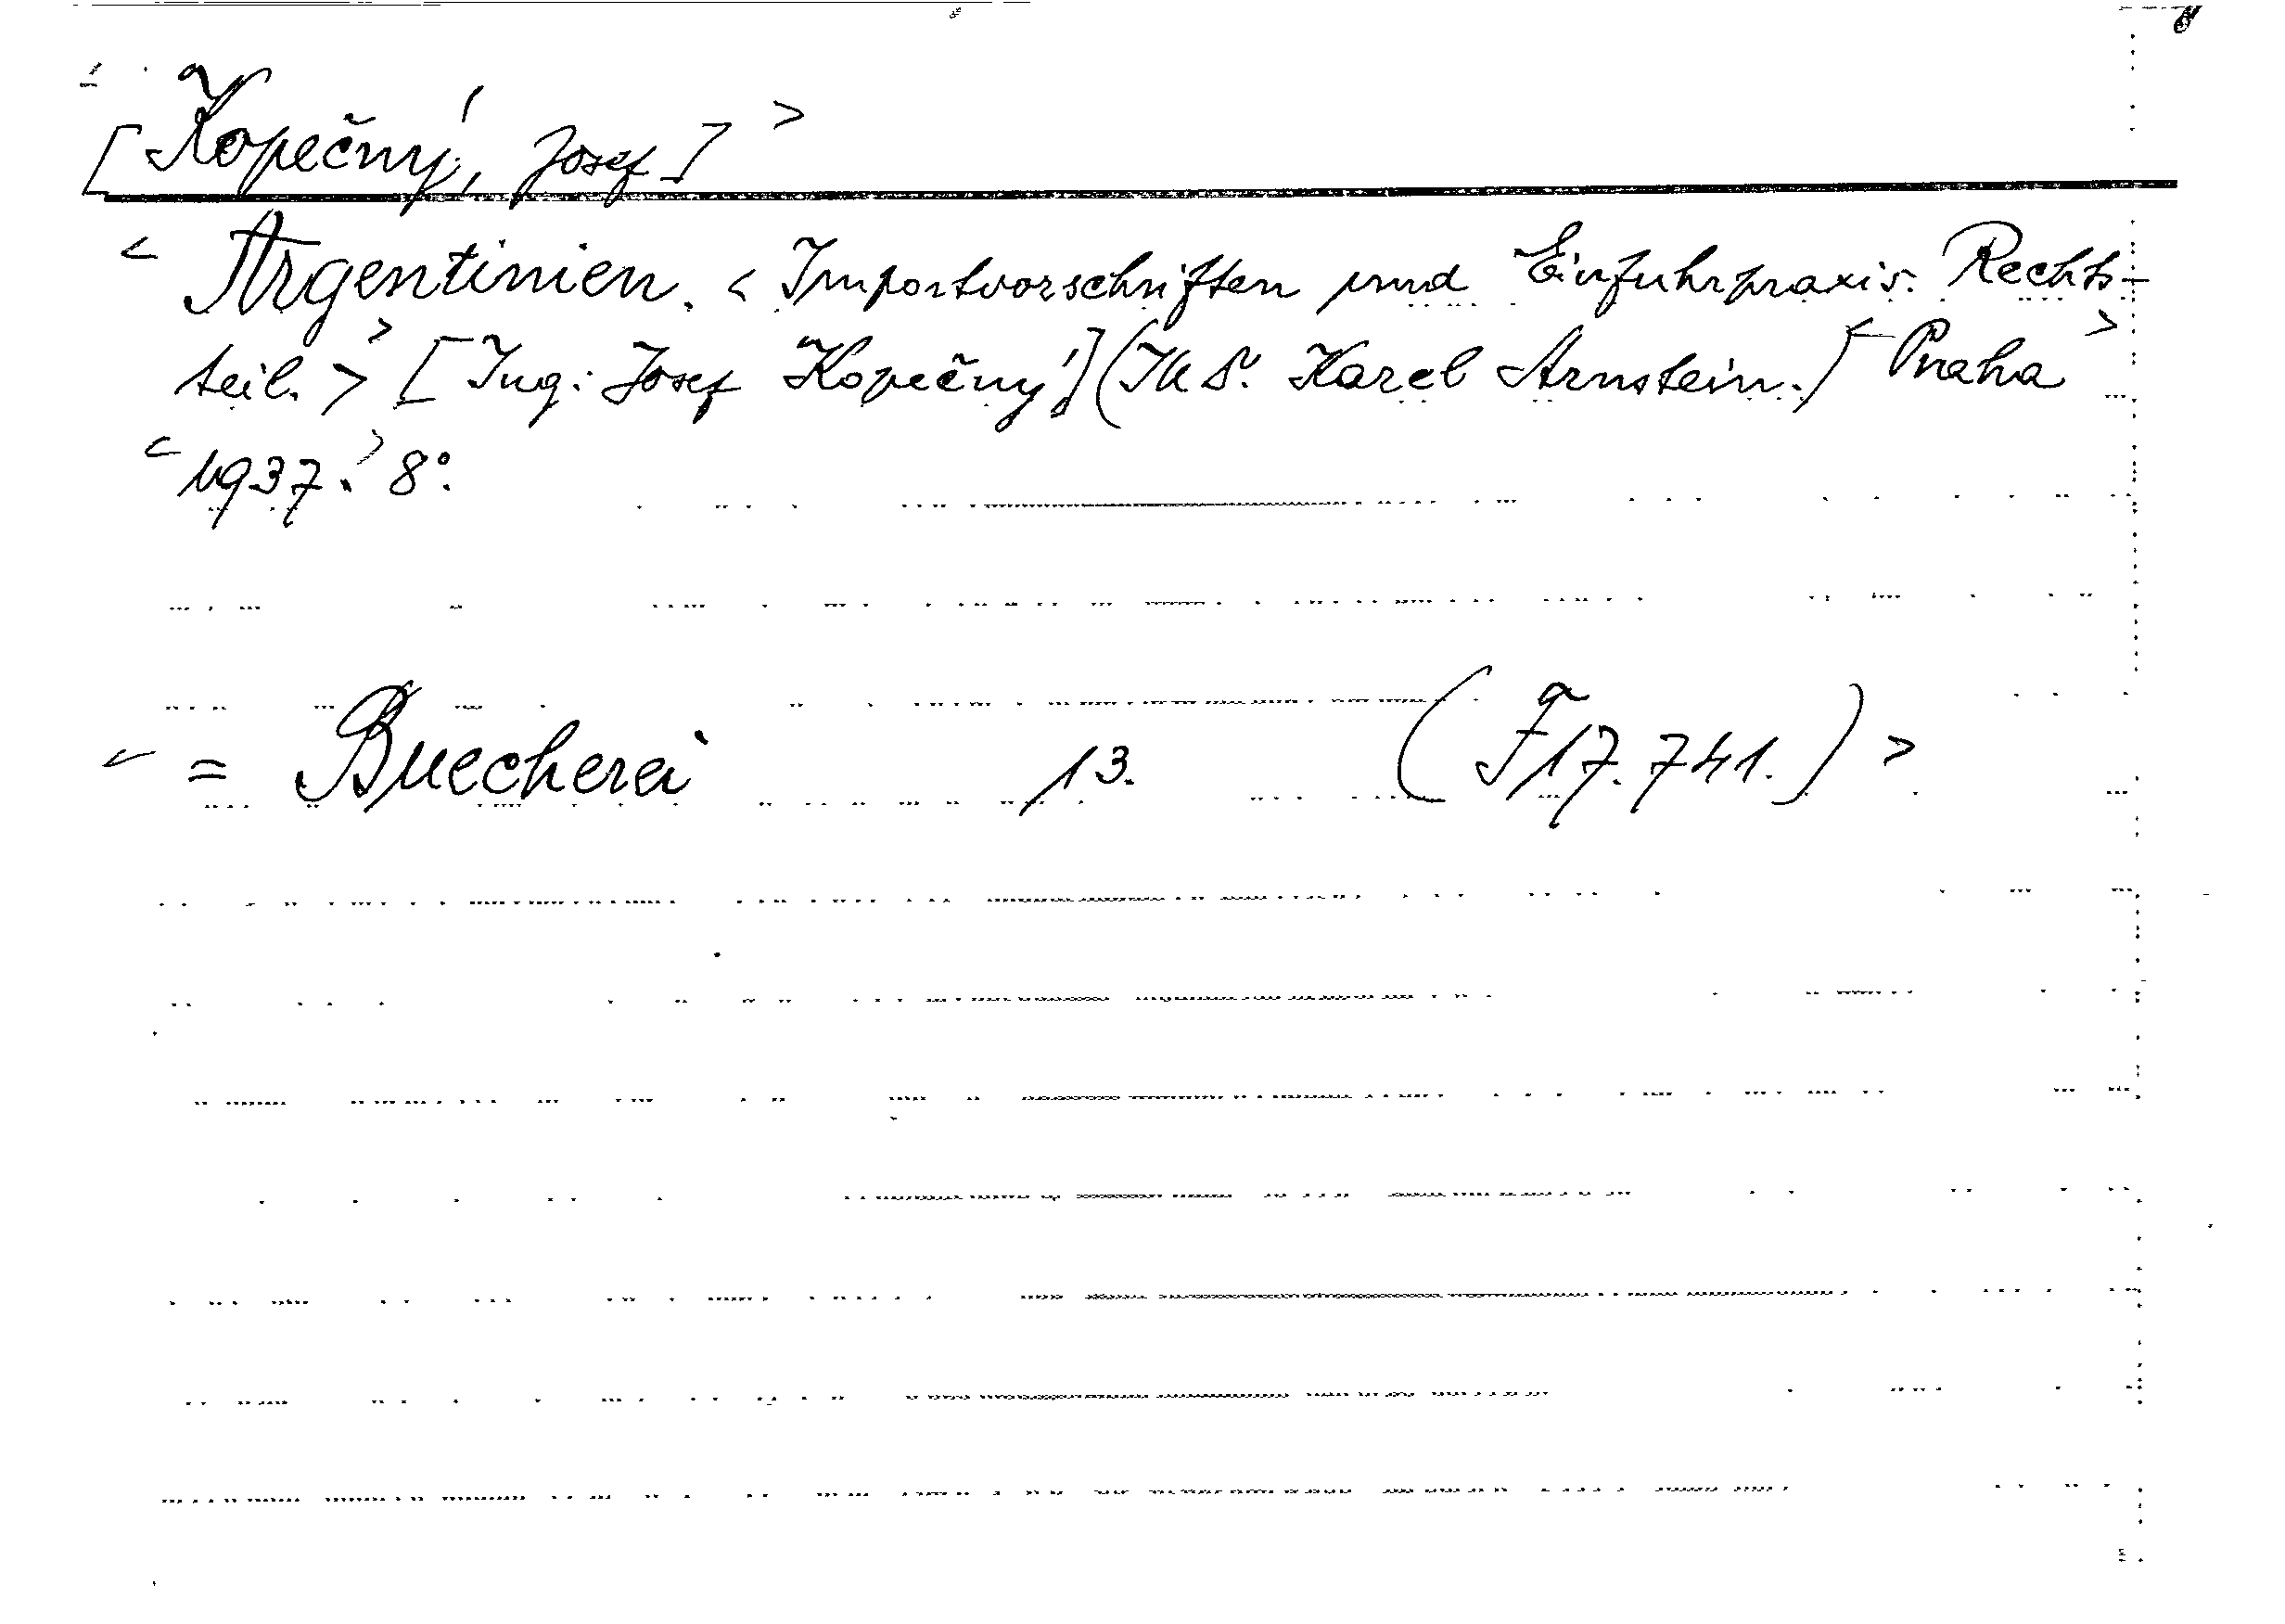 [Kopečný, Josef] >
< Argentinien. < Importvorschriften und Einfuhrpraxis. Rechts-
teil. > > [Ing: Josef Kopečný] ( Karel Arnstein.) < Praha >
< 1937. > 8°.
< = Buecherei 13. (F 17.741.) >